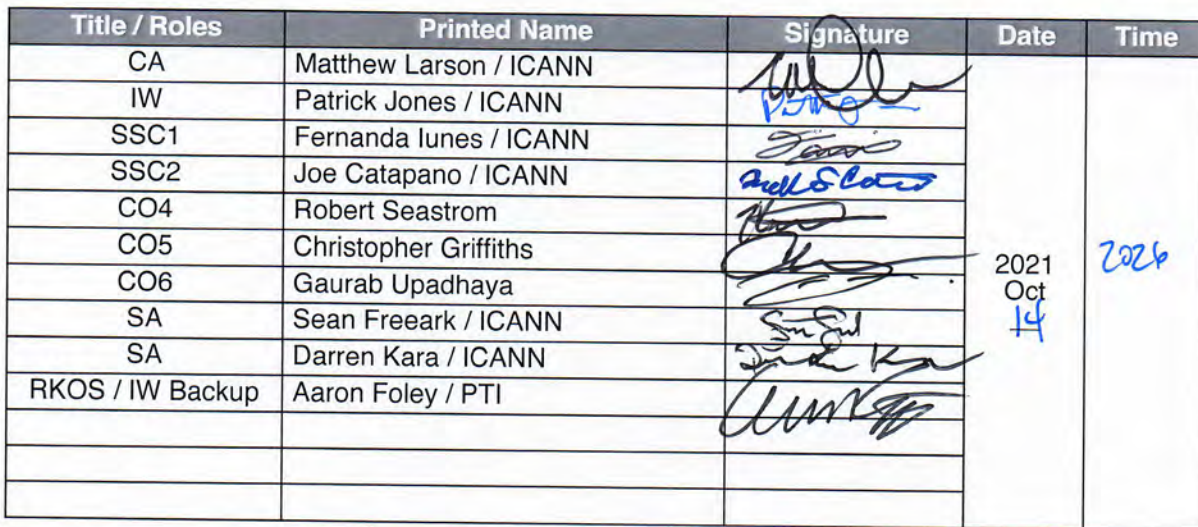 Title / Roles Printed Name Signature Date Time
CA Matthew Larson / ICANN
IW Patrick Jones / ICANN
SSC1 Fernanda Iunes / ICANN
SSC2 Joe Catapano / ICANN
CO4 Robert Seastrom
CO5 Christopher Griffiths
CO6 Gaurab Upadhaya
SA Sean Freeark / ICANN
SA Darren Kara / ICANN
RKOS / IW Backup Aaron Foley / PTI
2021
Oct
14
2026